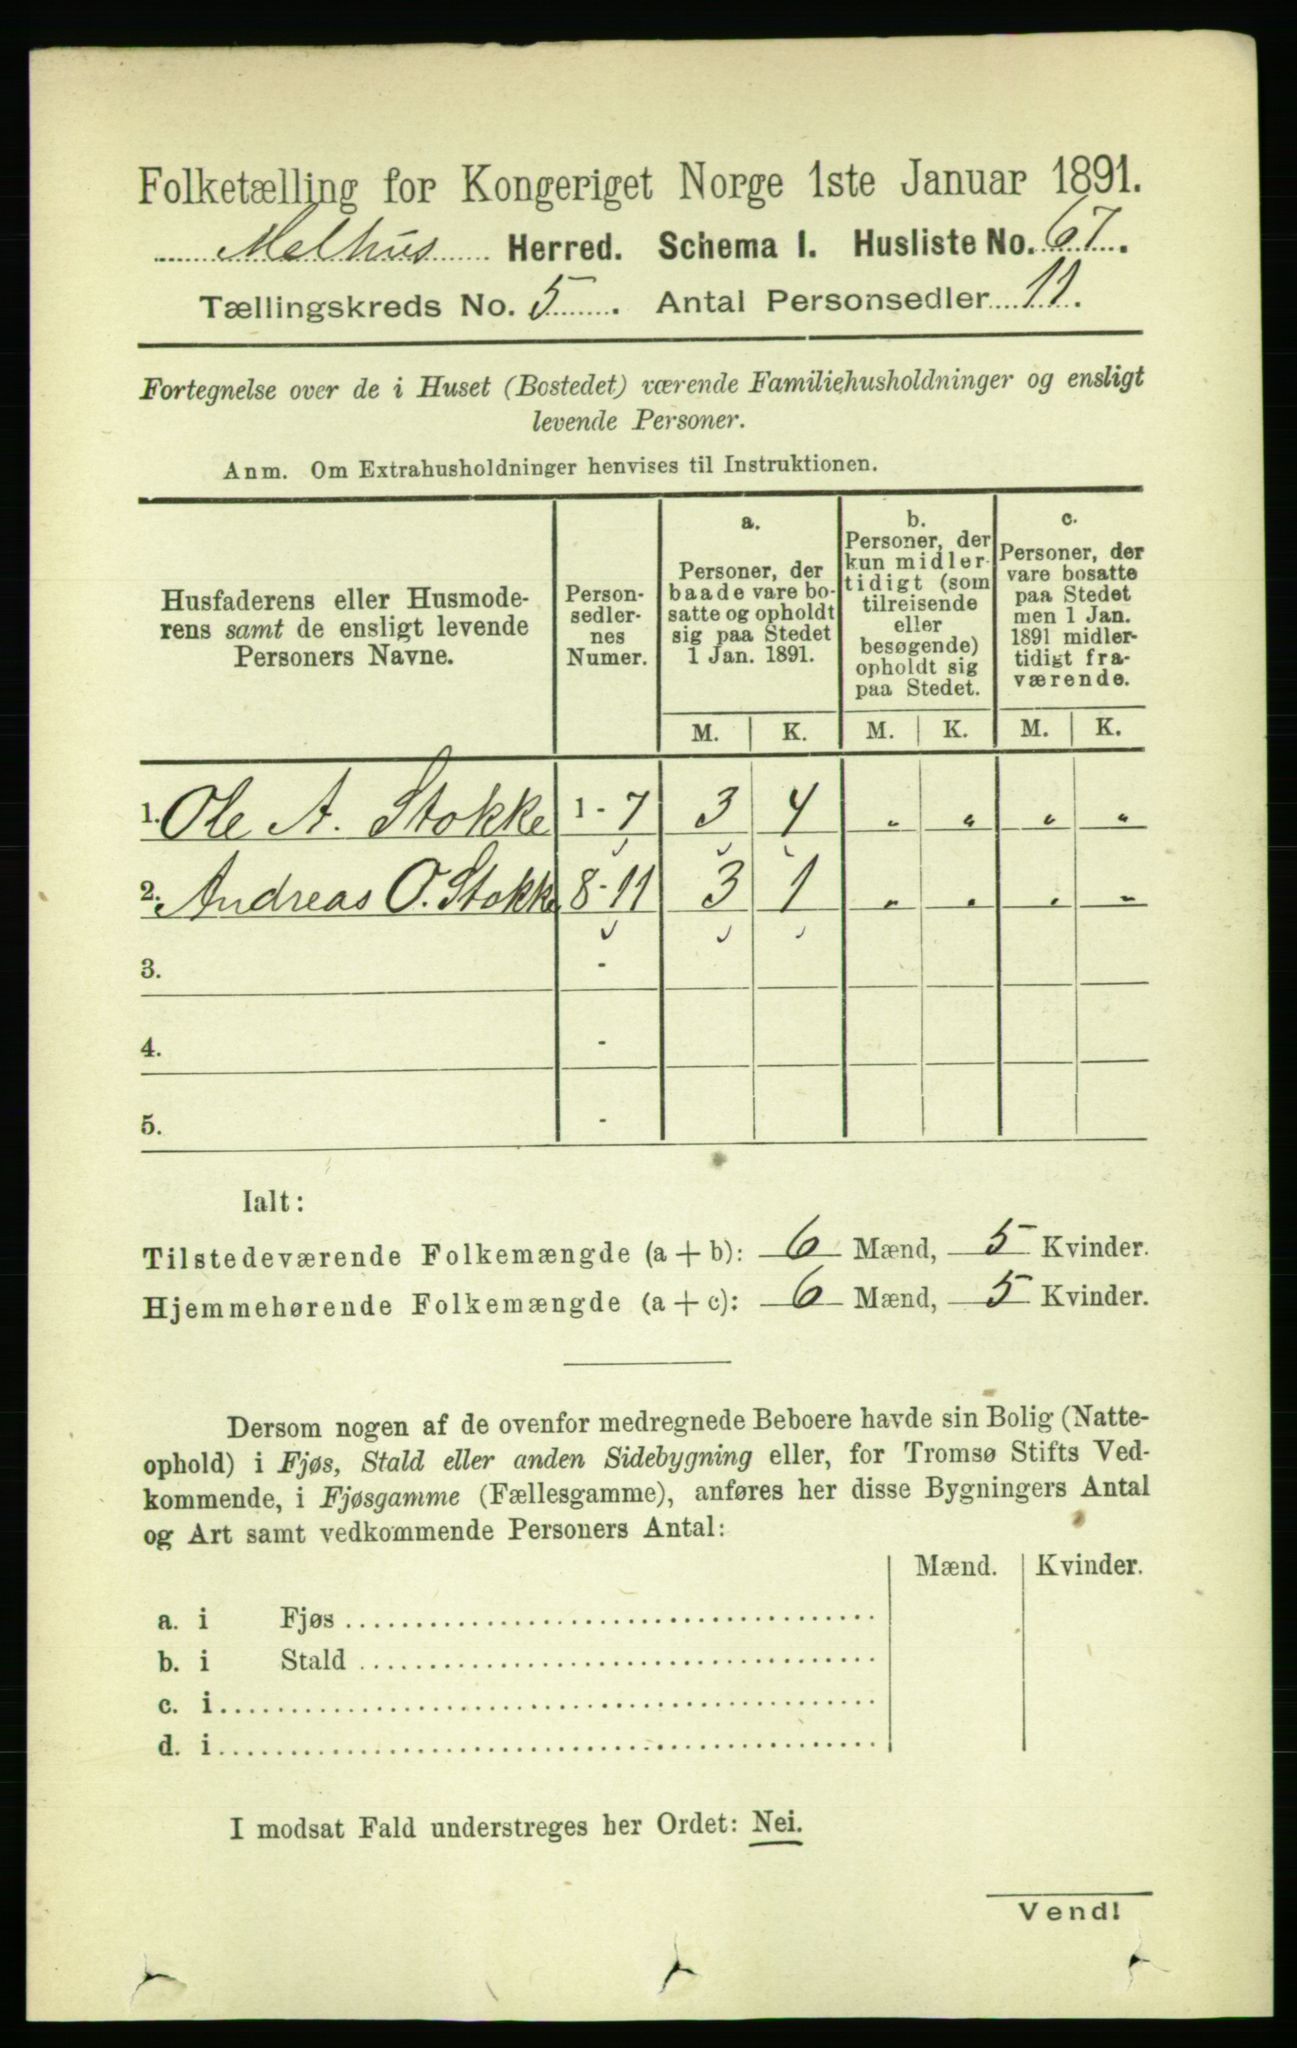 Folketælling for Kongeriget Norge 1ste Januar 1891.
Melhus Herred. Schema I. Husliste No. 67.
Tællingskreds No. 5. Antal Personsedler 11.
Fortegnelse over de i Huset (Bostedet) værende Familiehusholdninger og ensligt
levende Personer.
Anm. Om Extrahusholdninger henvises til Instruktionen.
Husfaderens eller Husmode-
rens samt de ensligt levende
Personers Navne.
Person-
sedler-
nes
Numer.
a.
Personer, der
baade vare bo-
satte og opholdt
sig paa Stedet
1 Jan. 1891.
b.
Personer, der
kun midler-
tidigt (som
tilreisende
eller
besøgende)
opholdt sig
paa Stedet.
c.
Personer, der
vare bosatte
paa Stedet
men 1 Jan.
1891 midler-
tidigt fra-
værende.
M. K. M. K. M. K.
1. Ole A. Stokke 1-7 3 4 " " " "
2. Andreas O. Stokke 8-11 3 1 " " " "
3. -
4. -
5. -
Ialt:
Tilstedeværende Folkemængde (a + b): 6 Mænd, 5 Kvinder.
Hjemmehørende Folkemængde (a + c): 6 Mænd, 5 Kvinder.
Dersom nogen af de ovenfor medregnede Beboere havde sin Bolig (Natte-
ophold) i Fjøs, Stald eller anden Sidebygning eller, for Tromsø Stifts Ved-
kommende, i Fjøsgamme (Fællesgamme), anføres her disse Bygningers Antal
og Art samt vedkommende Personers Antal:
Mænd. Kvinder.
a. i Fjøs
b. i Stald
c. i
d. i
I modsat Fald understreges her Ordet: Nei.
Vend!